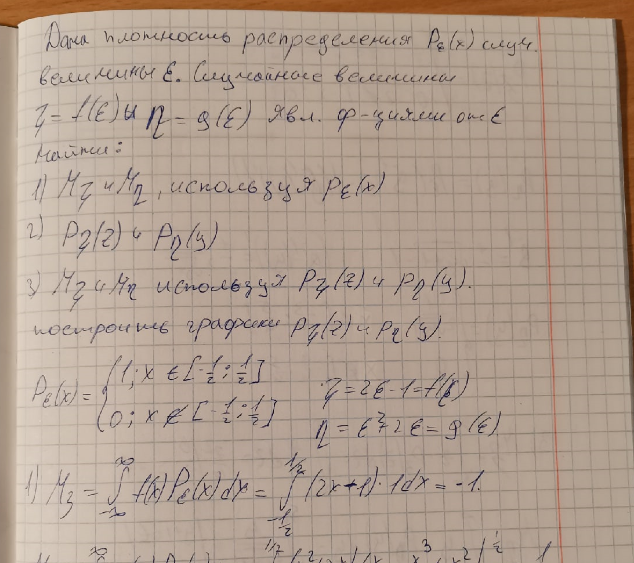 Дана плотность распределения P_ε(x) случ.
величины ε. Случайные величины
ζ = f(ε) и η = g(ε) явл. ф-циями от ε
Найти:
1) M_ζ и M_η, используя P_ε(x)
2) P_ζ(z) и P_η(y)
3) M_ζ и M_η используя P_ζ(z) и P_η(y).
построить графики P_ζ(z) и P_η(y).
P_ε(x) = { 1; x ∈ [-1/2; 1/2]
0; x ∉ [-1/2; 1/2]
ζ = 2ε - 1 = f(ε)
η = ε² + 2ε = g(ε)
1) M_ζ = ∫_{-∞}^{∞} f(x) P_ε(x) dx = ∫_{-1/2}^{1/2} (2x+1)·1 dx = -1.